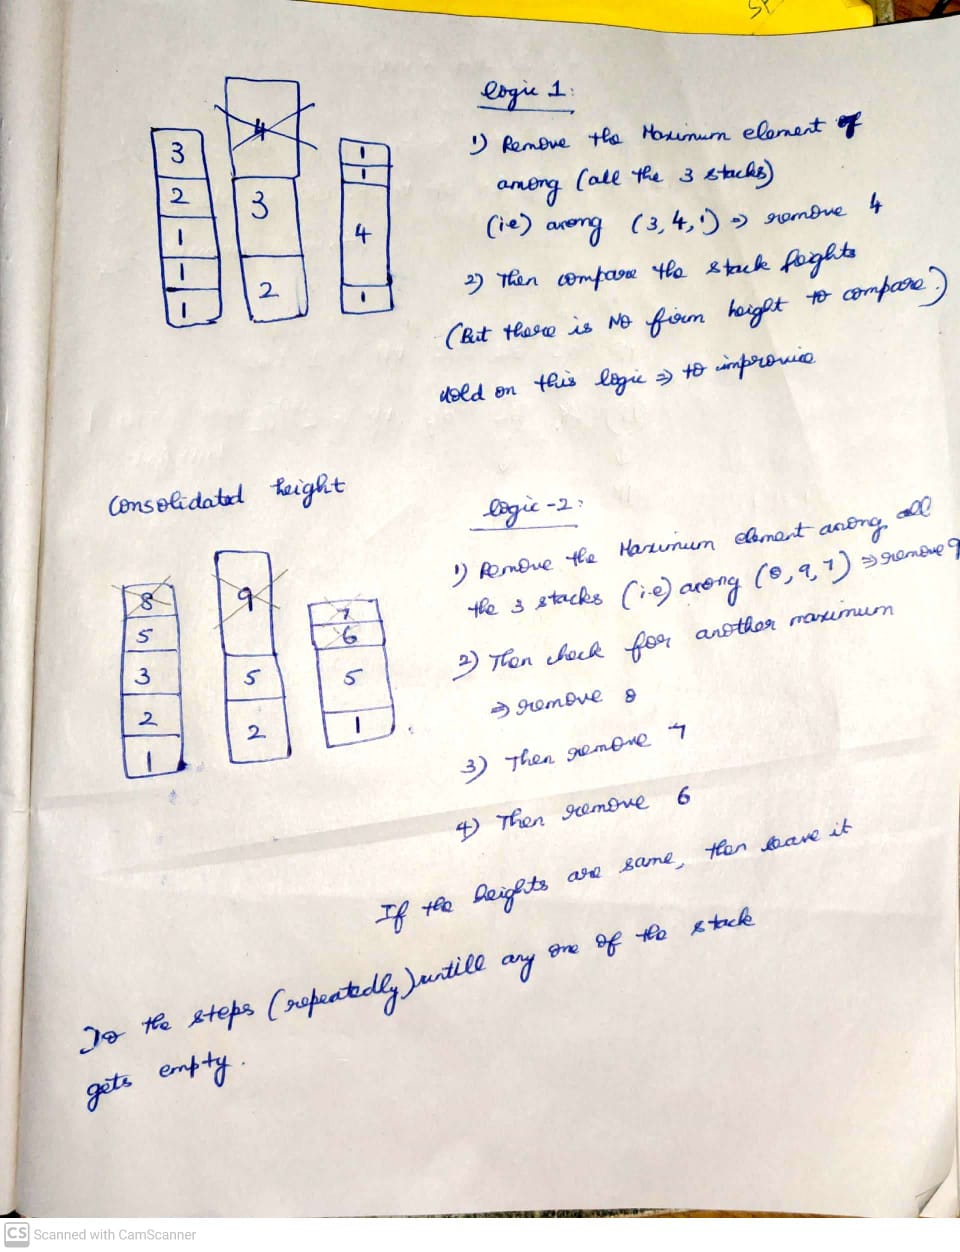 SP
logic 1:
3
2
1
1
1
4
3
2
1
1
4
1
1) Remove the Maximum element of
among (all the 3 stacks)
(i.e) among (3,4,1) ⇒ remove 4
2) Then compare the stack heights
(But there is No firm height to compare.)
Hold on this logic ⇒ to improvise
Consolidated height
8
5
3
2
1
9
5
2
7
6
5
1
logic -2:
1) Remove the Maximum element among all
the 3 stacks (i.e) among (8,9,7) ⇒ remove 9
2) Then check for another maximum
⇒ remove 8
3) Then remove 7
4) Then remove 6
If the heights are same, then leave it
Do the steps (repeatedly) untill any one of the stack
gets empty.
CS Scanned with CamScanner